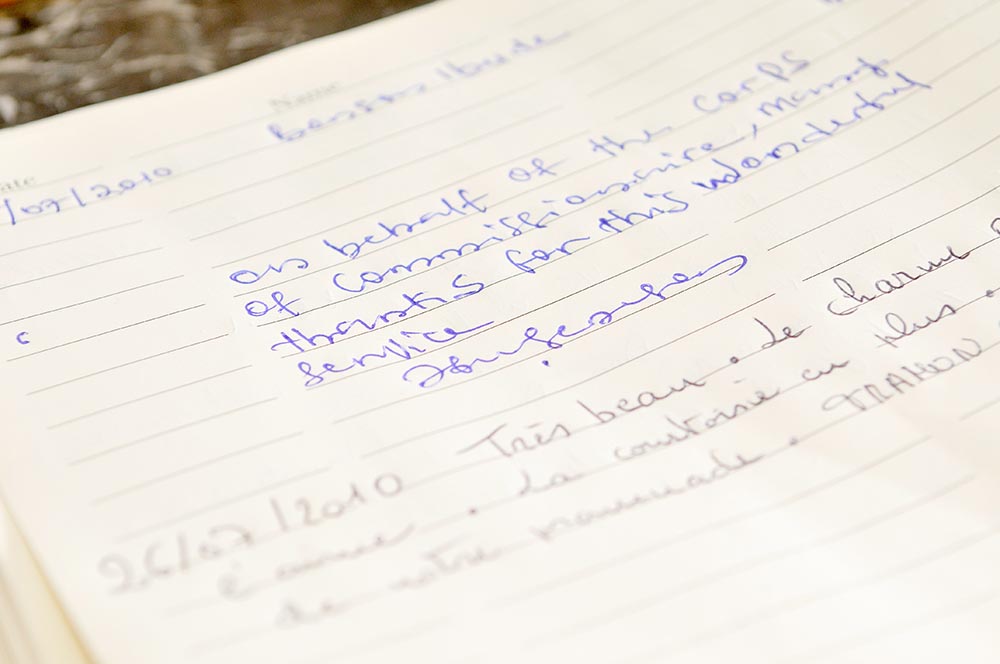 Name
/07/2010
on behalf of the corps
of commissionaire, many
thanks for this wonderful
service
26/07/2010 Très beau. Le charme
. La courtoisie en plus.
de votre promenade. TRAHON